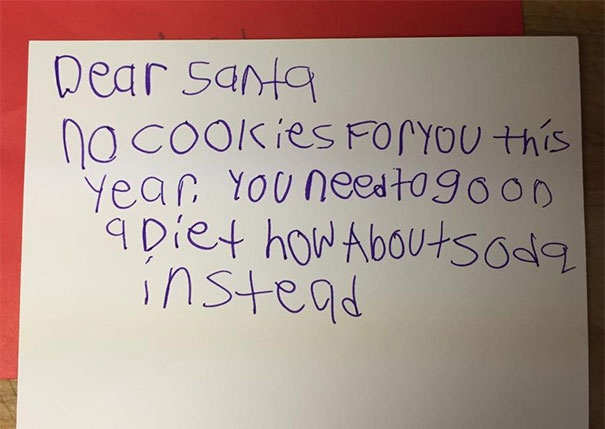 Dear Santa
No COOKies FOr YOU this
year. YOU need to go on
a Diet how About soda
instead